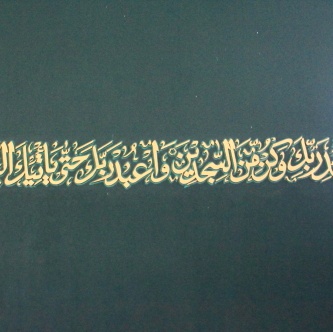 ربك وكن من السجدين واعبد ربك حتى يأتيك